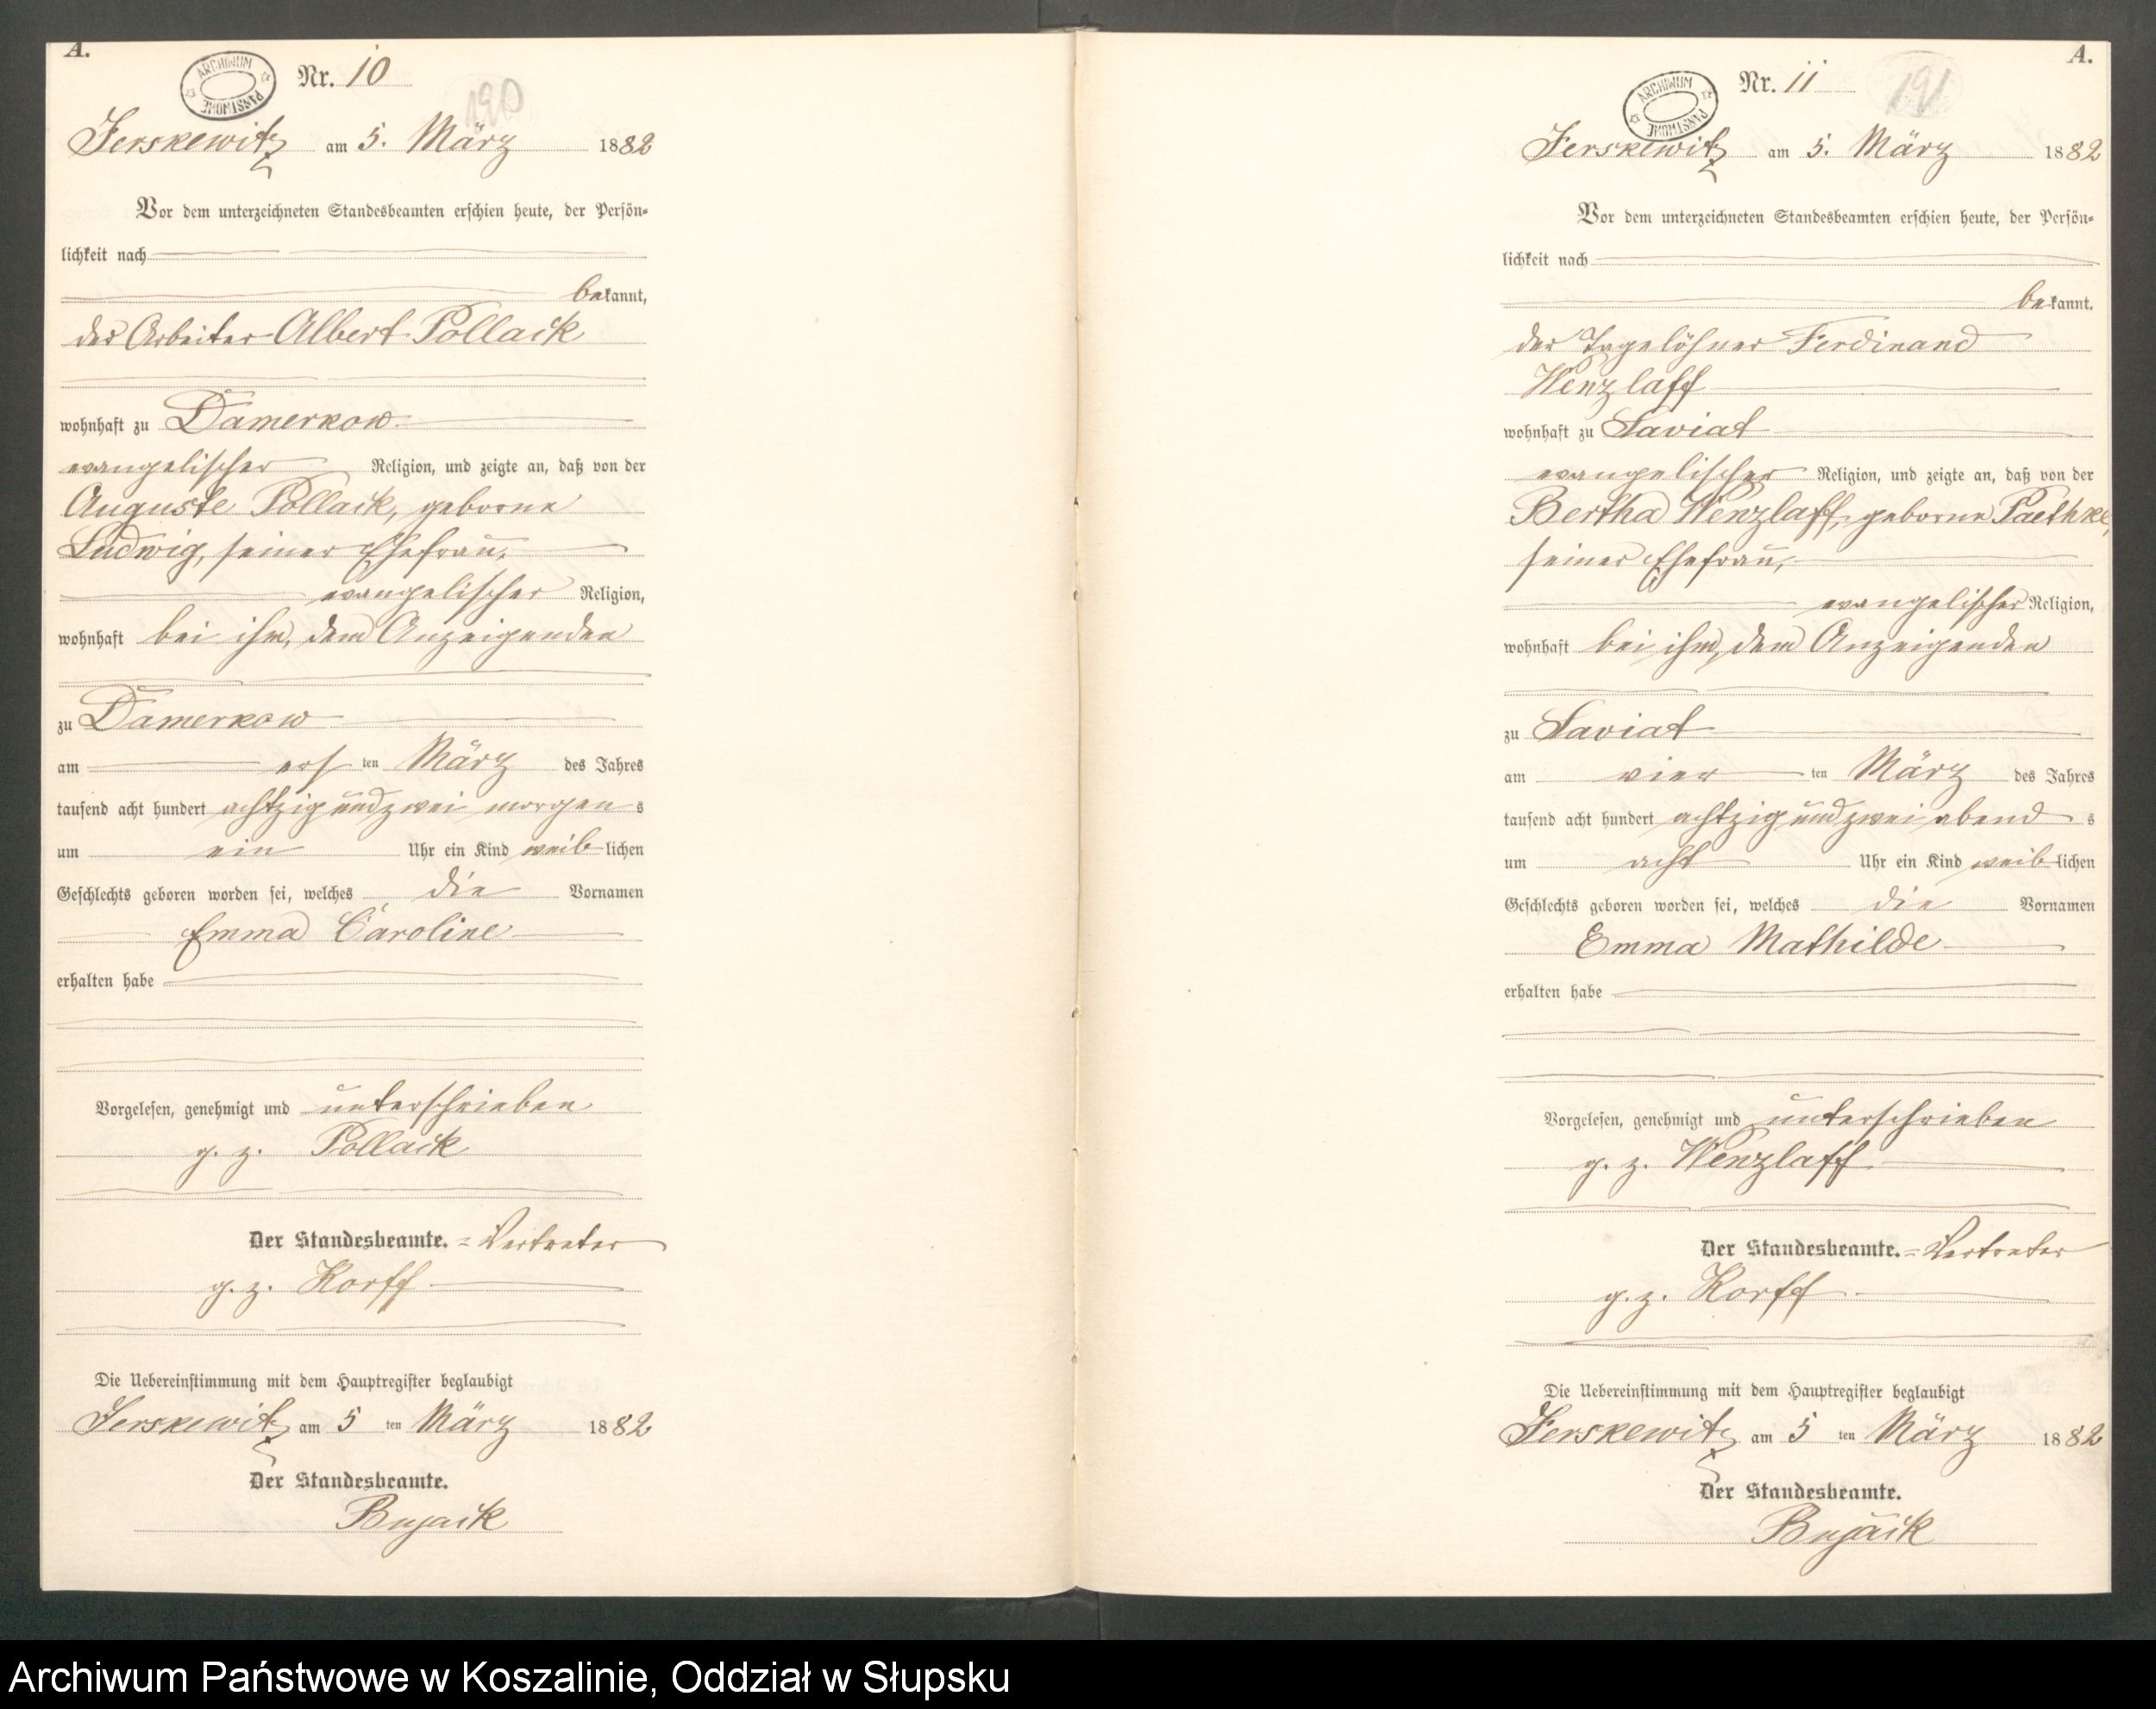 A.
ARCHIWUM PAŃSTWOWE
Nr. 10
190
Jerskewitz am 5. März 1882
Vor dem unterzeichneten Standesbeamten erschien heute, der Persön-
lichkeit nach
bekannt,
der Arbeiter Albert Pollack
wohnhaft zu Damerkow
evangelischer Religion, und zeigte an, daß von der
Auguste Pollack, geborne
Ludwig, seiner Ehefrau,
evangelischer Religion,
wohnhaft bei ihm, dem Anzeigenden
zu Damerkow
am ersten März des Jahres
tausend acht hundert achtzig und zwei morgens
um ein Uhr ein Kind weiblichen
Geschlechts geboren worden sei, welches die Vornamen
Emma Caroline
erhalten habe
Vorgelesen, genehmigt und unterschrieben
g. z. Pollack
Der Standesbeamte. = Vertreter
g. z. Korff
Die Uebereinstimmung mit dem Hauptregister beglaubigt
Jerskewitz am 5 ten März 1882
Der Standesbeamte.
Bujack
A.
ARCHIWUM PAŃSTWOWE
Nr. 11
191
Jerskewitz am 5. März 1882
Vor dem unterzeichneten Standesbeamten erschien heute, der Persön-
lichkeit nach
bekannt.
der Tagelöhner Ferdinand
Wenzlaff
wohnhaft zu Saviat
evangelischer Religion, und zeigte an, daß von der
Bertha Wenzlaff, geborne Paethke,
seiner Ehefrau,
evangelischer Religion,
wohnhaft bei ihm, dem Anzeigenden
zu Saviat
am vier ten März des Jahres
tausend acht hundert achtzig und zwei abends
um acht Uhr ein Kind weiblichen
Geschlechts geboren worden sei, welches die Vornamen
Emma Mathilde
erhalten habe
Vorgelesen, genehmigt und unterschrieben
g. z. Wenzlaff
Der Standesbeamte. = Vertreter
g. z. Korff
Die Uebereinstimmung mit dem Hauptregister beglaubigt
Jerskewitz am 5 ten März 1882
Der Standesbeamte.
Bujack
Archiwum Państwowe w Koszalinie, Oddział w Słupsku